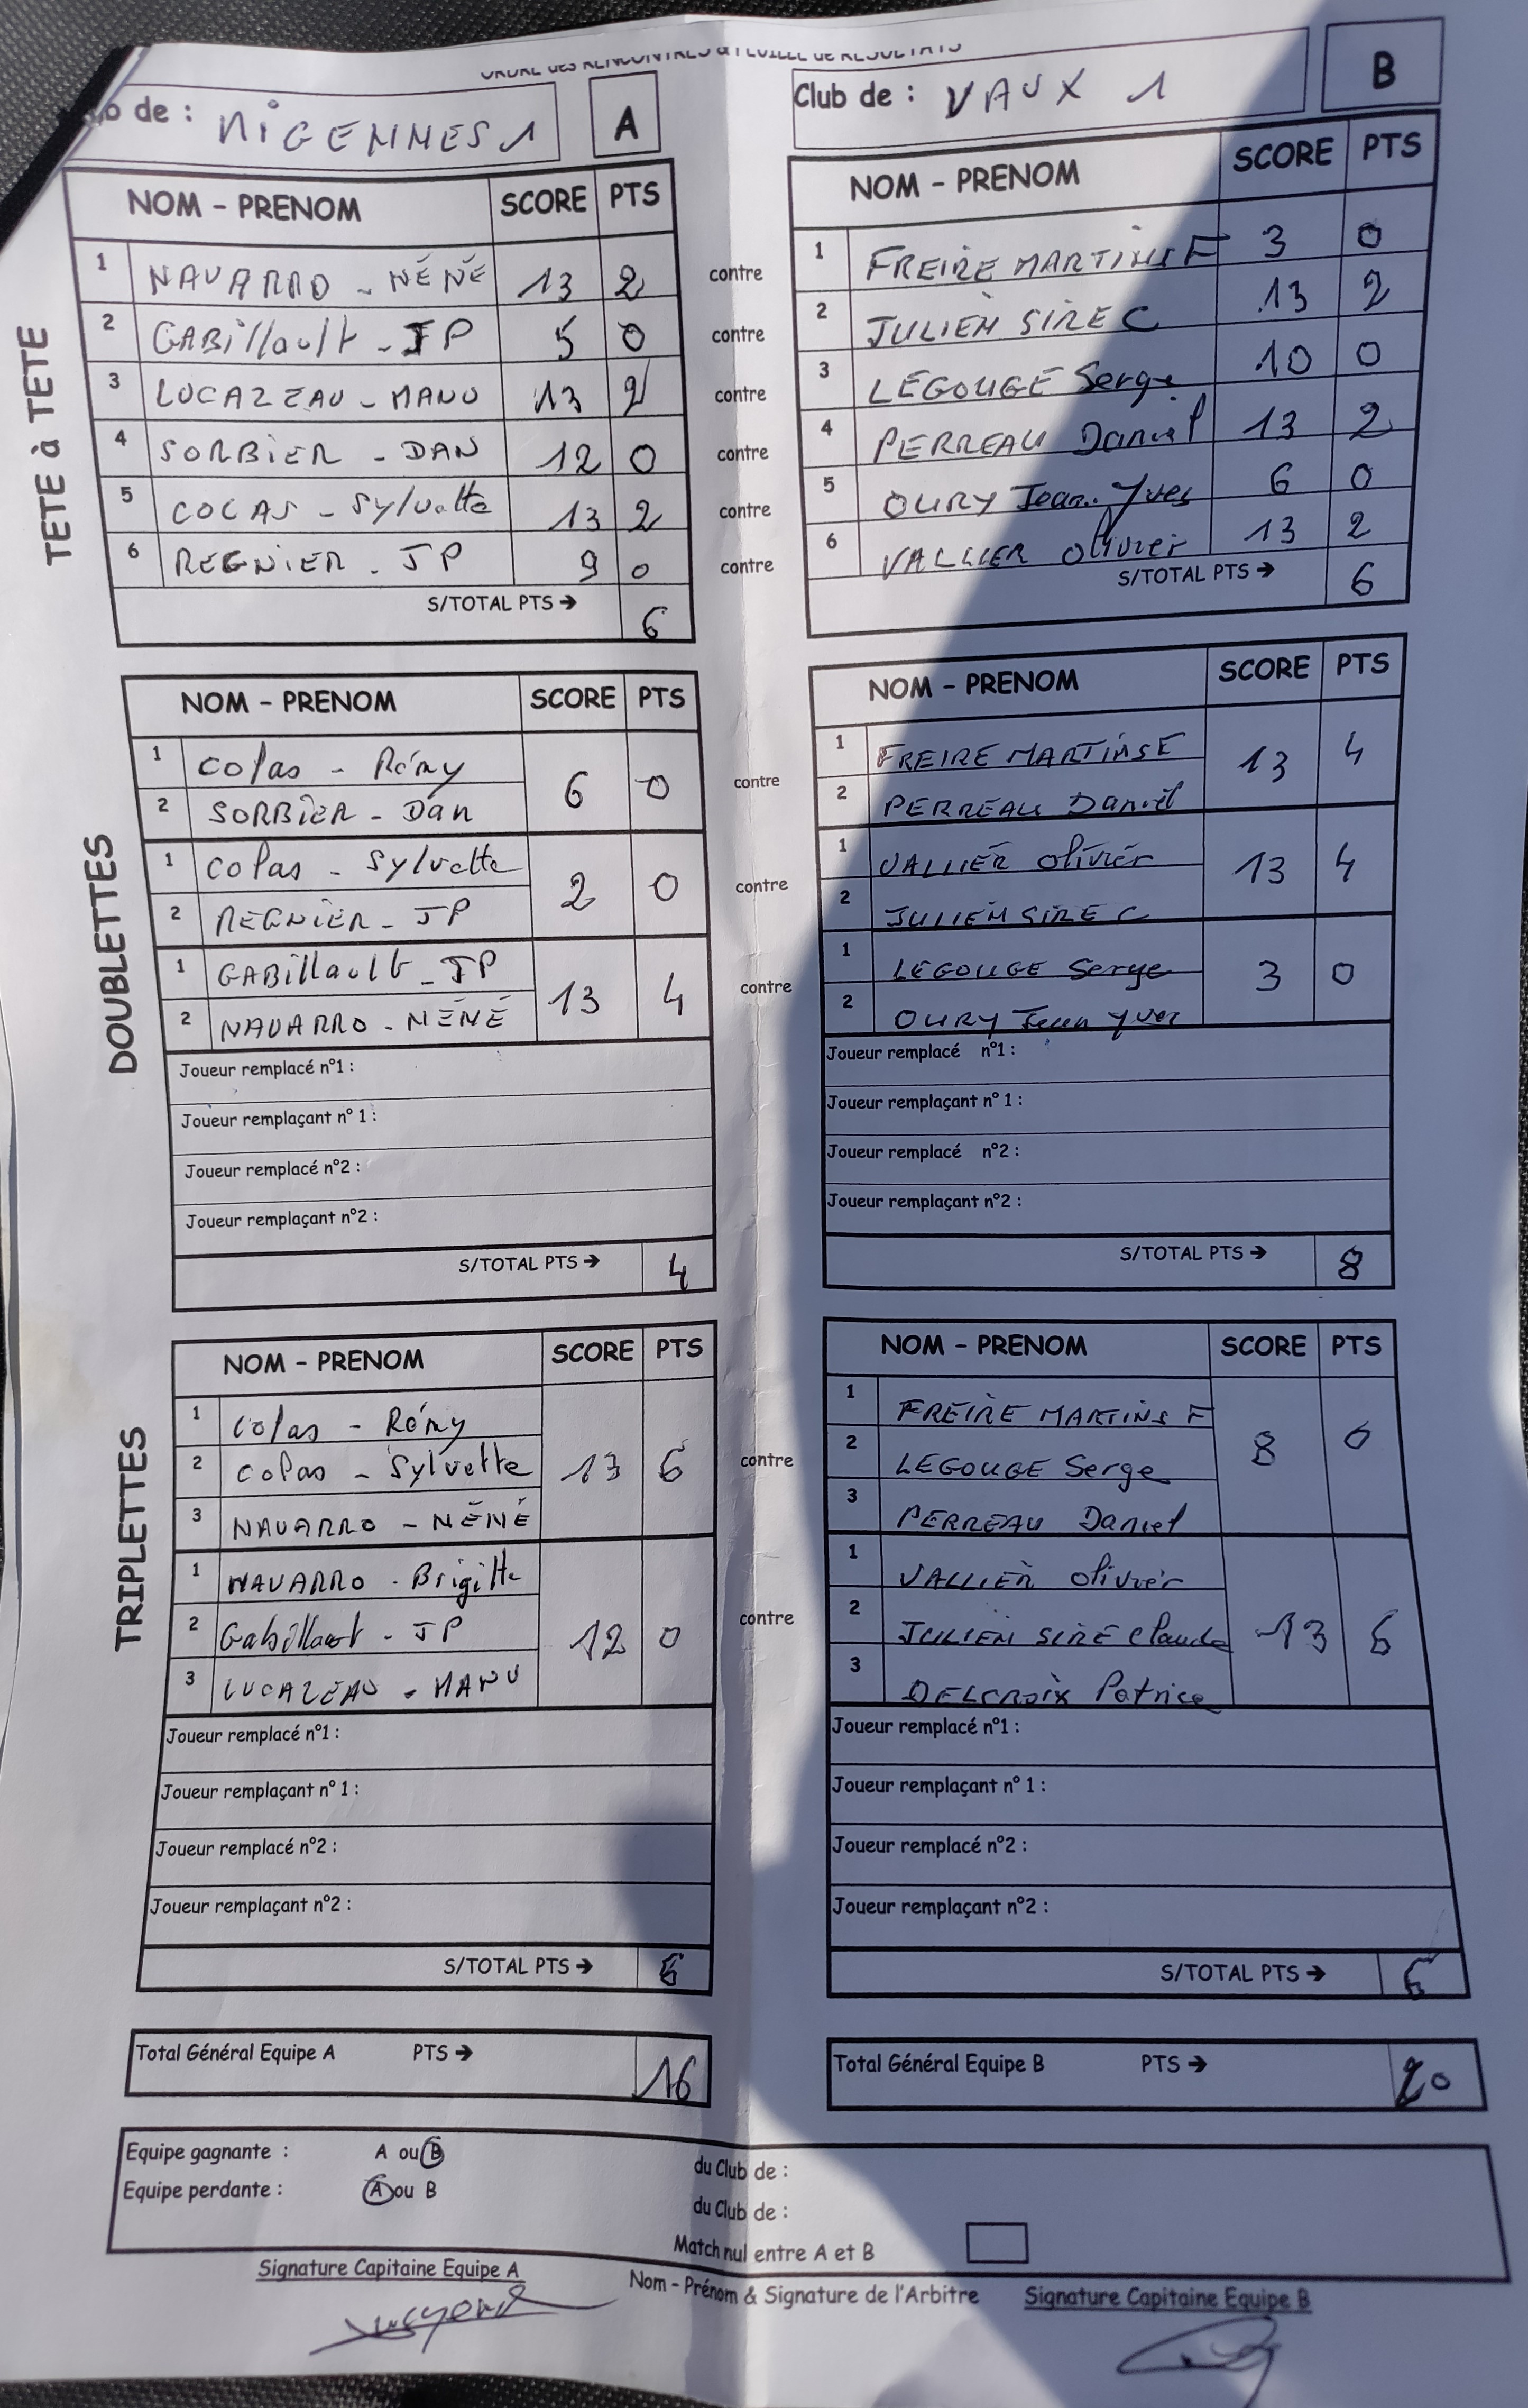 ORDRE des RENCONTRES & FEUILLE de RESULTATS
de : MIGENNES 1 A
NOM - PRENOM SCORE PTS
TETE à TETE
1 NAVARRO - NÉNÉ 13 2 contre
2 GABillault - JP 5 0 contre
3 LUCAZEAU - MANU 13 2 contre
4 SORBIER - DAN 12 0 contre
5 COLAS - Sylvette 13 2 contre
6 REGNIER - JP 9 0 contre
S/TOTAL PTS → 6
Club de : VAUX 1 B
NOM - PRENOM SCORE PTS
1 FREIRE MARTINS F 3 0
2 JULIEN SIRE C 13 2
3 LEGOUGE Serge 10 0
4 PERREAU Daniel 13 2
5 OURY Jean-Yves 6 0
6 VALLIER Olivier 13 2
S/TOTAL PTS → 6
DOUBLETTES
NOM - PRENOM SCORE PTS
1 Colas - Rémy
2 SORBIER - Dan
6 0 contre
1 Colas - Sylvette
2 REGNIER - JP
2 0 contre
1 GABillault - JP
2 NAVARRO - NÉNÉ
13 4 contre
Joueur remplacé n°1 :
Joueur remplaçant n° 1 :
Joueur remplacé n°2 :
Joueur remplaçant n°2 :
S/TOTAL PTS → 4
NOM - PRENOM SCORE PTS
1 FREIRE MARTINS F
2 PERREAU Daniel
13 4
1 VALLIER Olivier
2 JULIEN SIRE C
13 4
1 LEGOUGE Serge
2 OURY Jean Yves
3 0
Joueur remplacé n°1 :
Joueur remplaçant n° 1 :
Joueur remplacé n°2 :
Joueur remplaçant n°2 :
S/TOTAL PTS → 8
TRIPLETTES
NOM - PRENOM SCORE PTS
1 Colas - Rémy
2 Colas - Sylvette
3 NAVARRO - NÉNÉ
13 6 contre
1 NAVARRO - Brigitte
2 Gabillault - JP
3 LUCAZEAU - MANU
12 0 contre
Joueur remplacé n°1 :
Joueur remplaçant n° 1 :
Joueur remplacé n°2 :
Joueur remplaçant n°2 :
S/TOTAL PTS → 6
NOM - PRENOM SCORE PTS
1 FREIRE MARTINS F
2 LEGOUGE Serge
3 PERREAU Daniel
8 0
1 VALLIER Olivier
2 JULIEN SIRE Claude
3 DELCROIX Patrice
13 6
Joueur remplacé n°1 :
Joueur remplaçant n° 1 :
Joueur remplacé n°2 :
Joueur remplaçant n°2 :
S/TOTAL PTS → 6
Total Général Equipe A PTS → 16
Total Général Equipe B PTS → 20
Equipe gagnante : A ou B du Club de :
Equipe perdante : A ou B du Club de :
Match nul entre A et B
Signature Capitaine Equipe A
Nom - Prénom & Signature de l'Arbitre
Signature Capitaine Equipe B